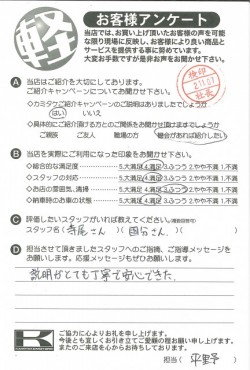 軽
お客様アンケート
当店では、お買い上げ頂いたお客様の声を可能
な限り現場に反映し、お客様により良い商品と
サービスを提供する事に努めています。
大変お手数ですが是非お声をお聞かせ下さい。
検印
社長
A 当店はご紹介を大切にしております。
ご紹介キャンペーンについてお聞かせ下さい。
◇カミタケご紹介キャンペーンのご説明はありましたでしょうか
はい いいえ
◇具体的にご紹介頂ける方とのご関係をお聞かせ頂けますでしょうか
ご親族 ご友人 職場の方 機会があれば紹介したい
B 当店を実際にご利用になった印象をお聞かせ下さい。
◇総合的な満足度 5.大満足 4.満足 3.ふつう 2.やや不満 1.不満
◇スタッフの対応 5.大満足 4.満足 3.ふつう 2.やや不満 1.不満
◇お店の雰囲気、清掃 5.大満足 4.満足 3.ふつう 2.やや不満 1.不満
◇納車時のお車の状態 5.大満足 4.満足 3.ふつう 2.やや不満 1.不満
C 評価したいスタッフがいれば教えてください。(複数回答可)
スタッフ名( 寺尾さん )( 国分さん )
D 担当させて頂きましたスタッフへのご指摘、ご指導メッセージを
お願いします。応援メッセージもぜひお願いします。
説明がとても丁寧で安心できた。
K
ご協力に心よりお礼を申し上げます。
今後とも宜しくお引き立てご愛顧の程お願い申し上げます。
またのご来店を心からお待ちしております。
担当( 平野 )